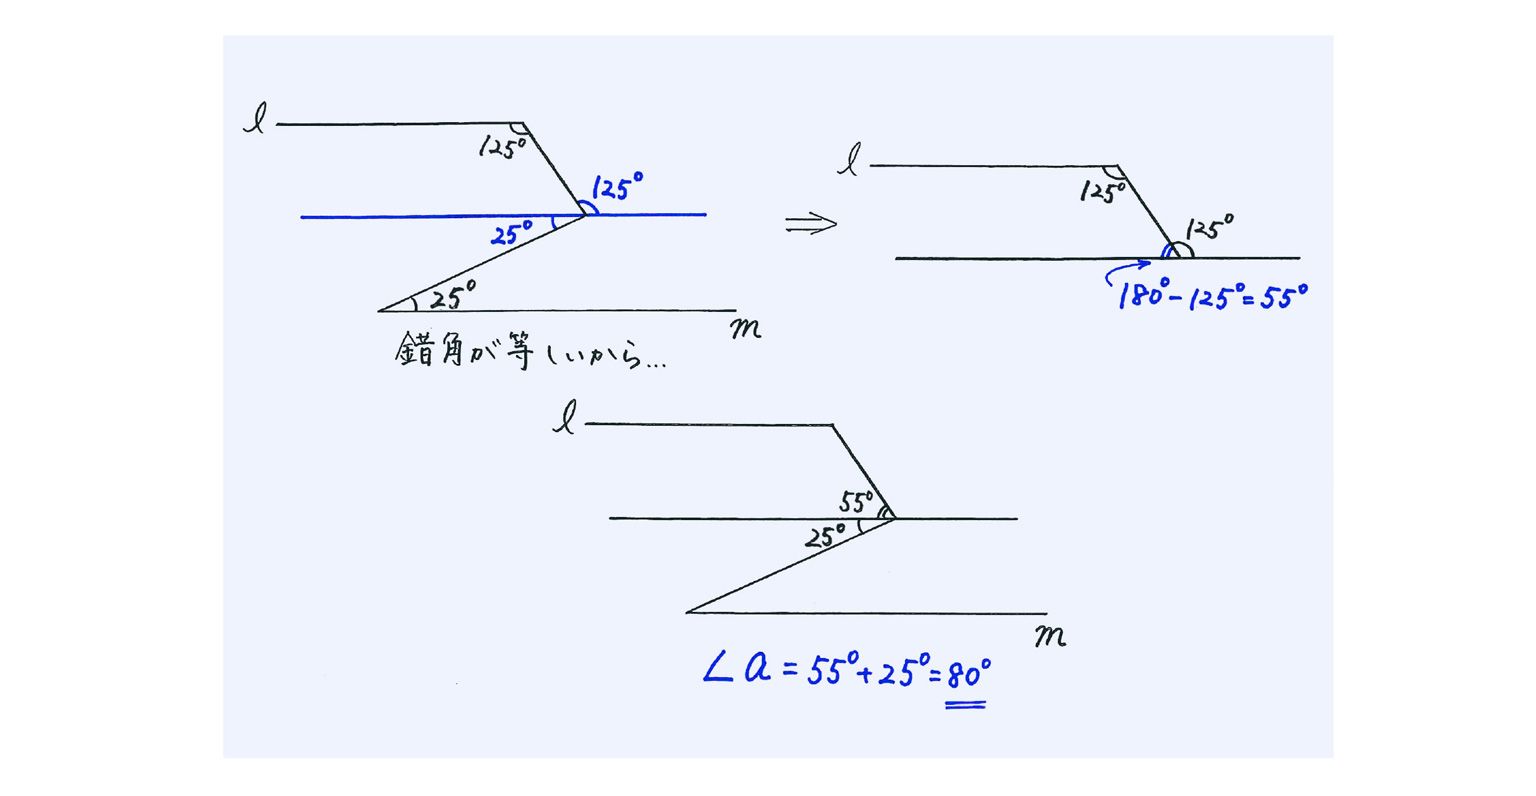 l
125°
125°
25°
25°
m
錯角が等しいから…
⇒
l
125°
125°
180°-125°=55°
l
55°
25°
m
∠a=55°+25°=80°